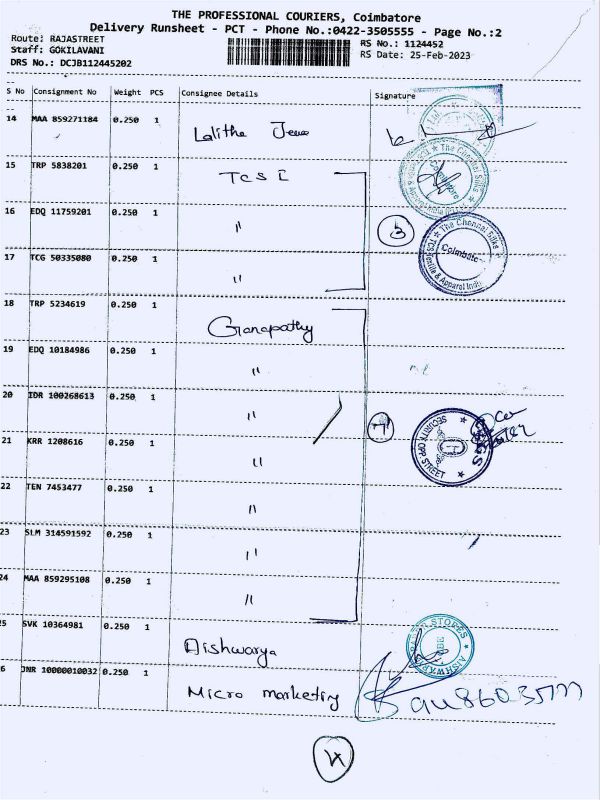 THE PROFESSIONAL COURIERS, Coimbatore
Delivery Runsheet - PCT - Phone No.:0422-3505555 - Page No.:2
Route: RAJASTREET
Staff: GOKILAVANI
DRS No.: DCJB112445202
RS No.: 1124452
RS Date: 25-Feb-2023
S No Consignment No Weight PCS Consignee Details Signature
14 MAA 859271184 0.250 1 Lalitha
15 TRP 5838201 0.250 1 TCS I
16 EDQ 11759201 0.250 1 "
3
17 TCG 50335080 0.250 1 "
The Chennai Silks
Coimbatore
18 TRP 5234619 0.250 1 Ganapathy
19 EDQ 10184986 0.250 1 "
20 IDR 100268613 0.250 1 "
7
SECURITY OPP. STREET
21 KRR 1208616 0.250 1 "
22 TEN 7453477 0.250 1 "
23 SLM 314591592 0.250 1 "
24 MAA 859295108 0.250 1 "
25 SVK 10364981 0.250 1 Aishwarya
26 JNR 10000010032 0.250 1 Micro marketing